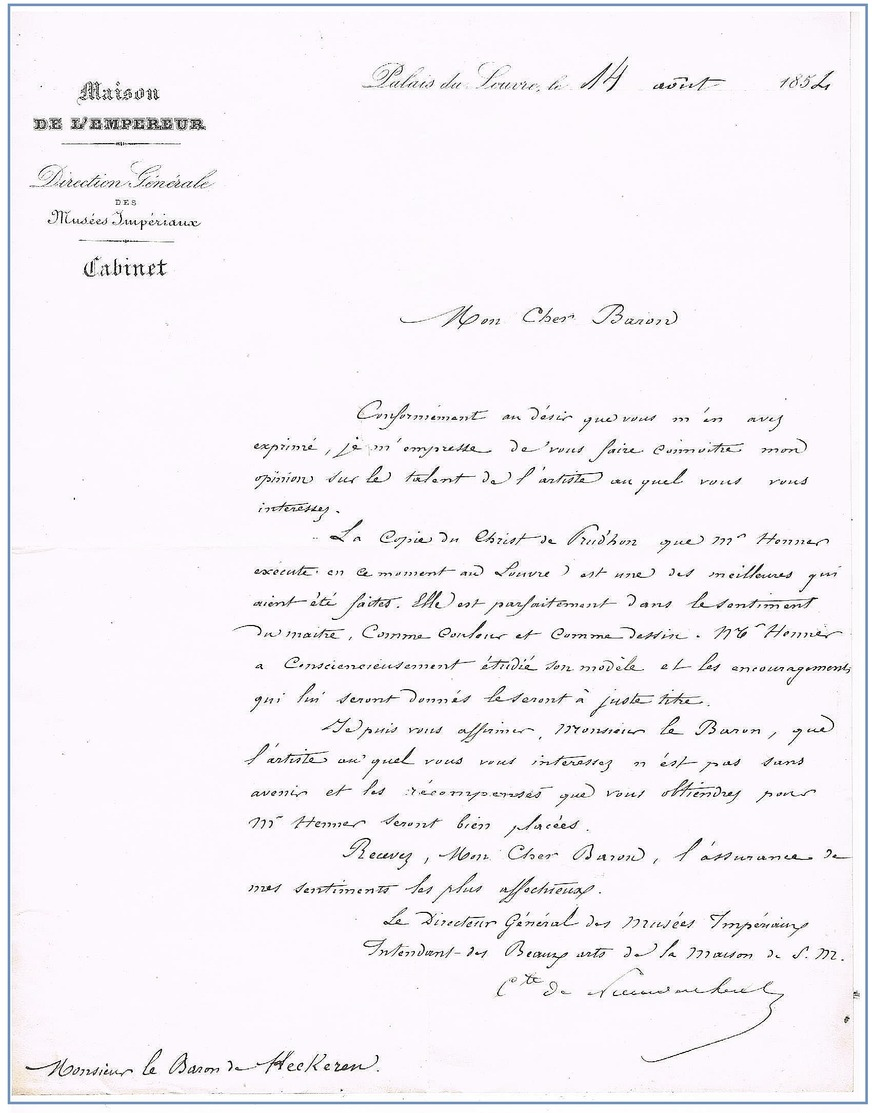 Maison
DE L'EMPEREUR
Direction Générale
DES
Musées Impériaux
Cabinet
Palais du Louvre, le 14 août 1854
Mon Cher Baron
Conformément au désir que vous m'en avez
exprimé, je m'empresse de vous faire connoitre mon
opinion sur le talent de l'artiste auquel vous vous
interessez.
La Copie du Christ de Prud'hon que Mr Henner
exécute en ce moment au Louvre est une des meilleures qui
aient été faites. Elle est parfaitement dans le sentiment
du maitre, Comme Couleur et Comme dessin. Mr Henner
a Consciencieusement étudié son modèle et les encouragements
qui lui seront donnés le seront à juste titre.
Je puis vous affirmer, Monsieur le Baron, que
l'artiste auquel vous vous interessez n'est pas sans
avenir et les récompenses que vous obtiendrez pour
Mr Henner seront bien placées.
Recevez, Mon Cher Baron, l'assurance de
mes sentiments les plus affectueux.
Le Directeur Général des Musées Impériaux
Intendant des Beaux arts de la Maison de S. M.
Cte de Nieuwerkerke
Monsieur le Baron de Heckeren.